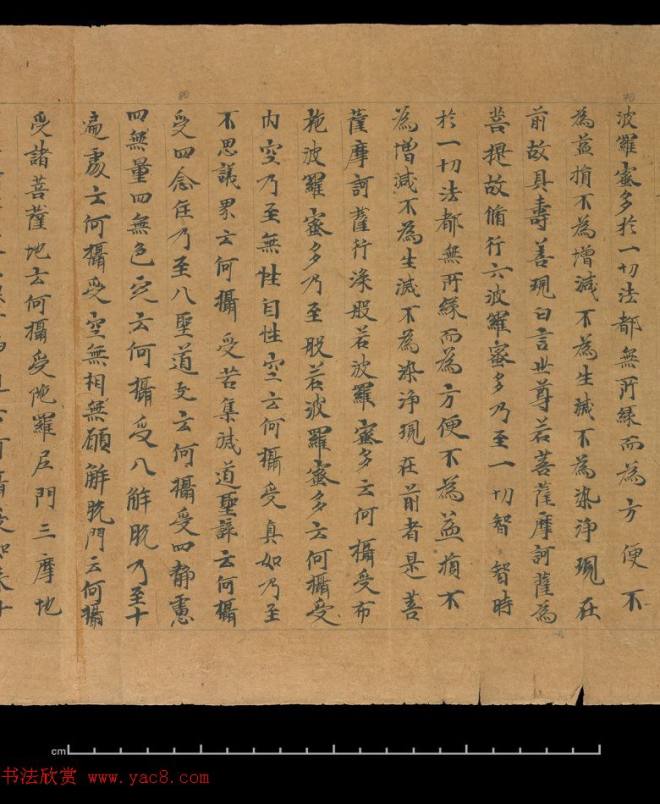 波羅蜜多於一切法都無所緣而為方便不
為益損不為增減不為生滅不為染淨現在
前故具壽善現白言世尊若菩薩摩訶薩為
菩提故脩行六波羅蜜多乃至一切智智時
於一切法都無所緣而為方便不為益損不
為增減不為生滅不為染淨現在前者是菩
薩摩訶薩行深般若波羅蜜多云何攝受布
施波羅蜜多乃至般若波羅蜜多云何攝受
內空乃至無性自性空云何攝受真如乃至
不思議界云何攝受苦集滅道聖諦云何攝
受四念住乃至八聖道支云何攝受四靜慮
四無量四無色定云何攝受八解脫乃至十
遍處云何攝受空無相無願解脫門云何攝
受諸菩薩地云何攝受陀羅尼門三摩地
cm
书法欣赏 www.yac8.com